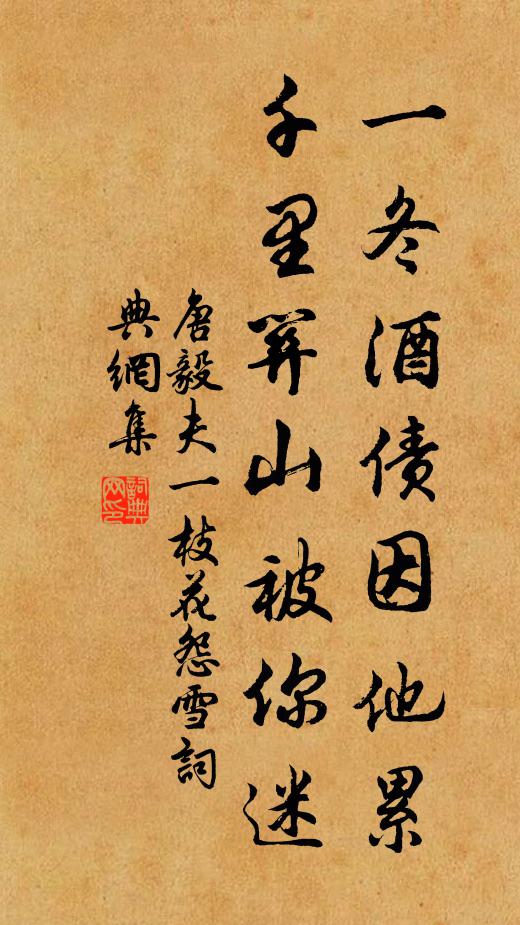 一冬酒债因他累
千里关山被你迷
唐毅夫一枝花怨雪詞
典網集
詞典网印